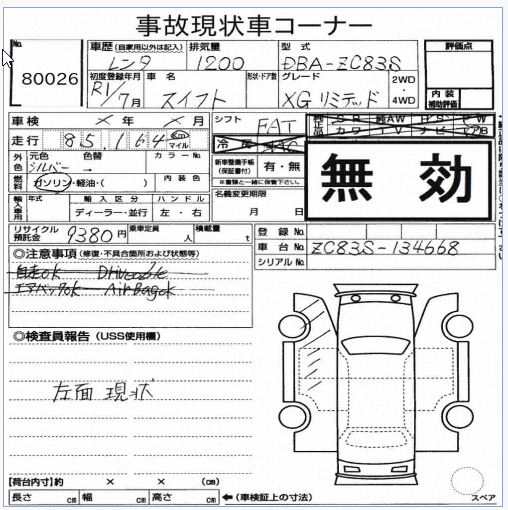 事故現状車コーナー
No.
80026
車歴 (自家用以外は記入)
レンタ
排気量
1200
型式
DBA-ZC83S
評価点
初度登録年月
R1/7月
車名
スイフト
形状・ドア数
グレード
XGリミテッド
2WD
・
4WD
内装
補助評価
車検 × 年 × 月
シフト
FAT
走行 85,164 Km マイル
冷房 AAC
S R 純AW P S P W
カワ T V ナビ エアB
無効
外色
元色
シルバー
色替
→
カラーNo.
燃料
ガソリン・軽油・( )
内装色
新車整備手帳
(保証書付)
有・無
※書類と一緒に保管下さい。
輸入車用
年式
輸入区分
ディーラー・並行
ハンドル
左・右
名義変更期限
月 日
リサイクル
預託金
9380円
乗車定員
人
積載量
t
登録No.
車台No.
ZC83S-134668
シリアルNo.
◎注意事項 (修復・不具合箇所および状態等)
自走ok Driveable
エアバックok AirBagok
◎検査員報告 (USS使用欄)
左面 現状
【荷台内寸】約 × × (cm)
長さ cm 幅 cm 高さ cm ←(車検証上の寸法)
スペア